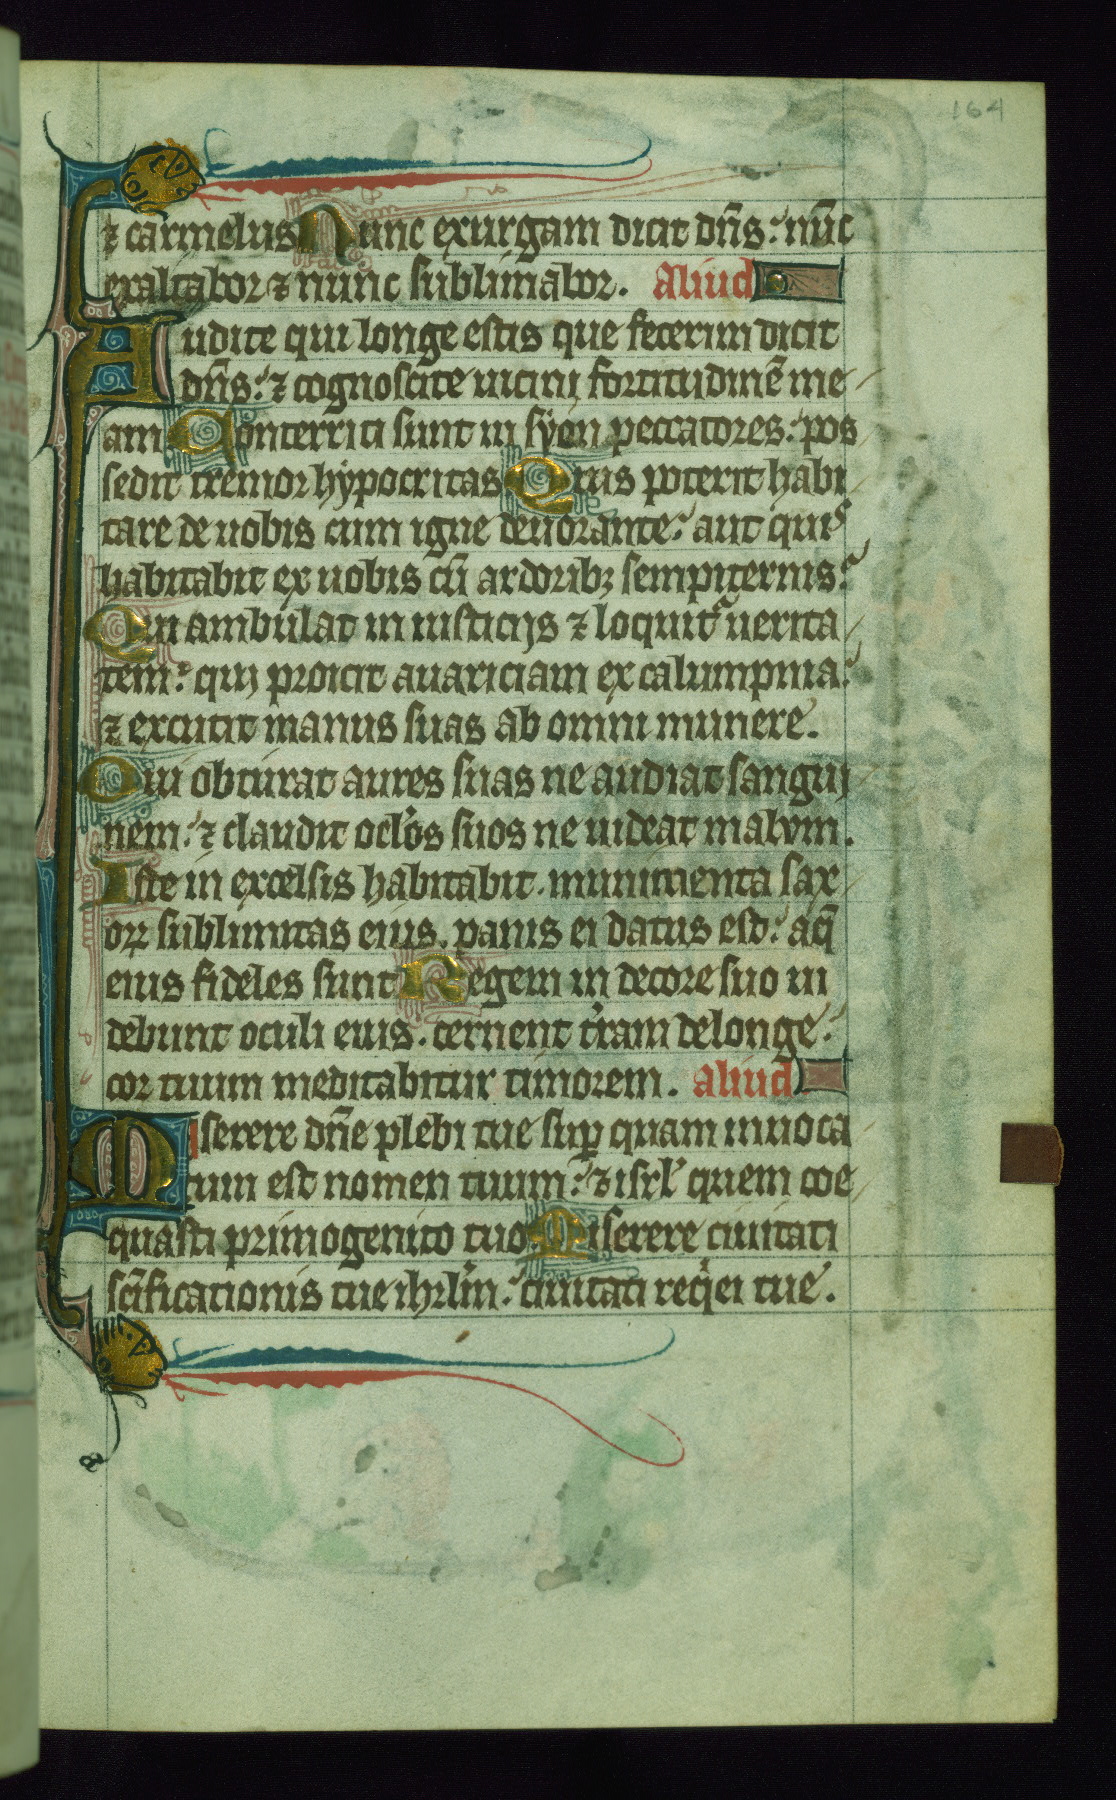 164
⁊ carmelus Nunc exurgam dicit dn̄s: nūc
exaltabor ⁊ nunc sublimabor. Aliud
Audite qui longe estis que fecerim dicit
dn̄s: ⁊ cognoscite uicini fortitudinē me
am Conterriti sunt in syon peccatores: pos
sedit tremor hypocritas Quis poterit habi
tare de uobis cum igne deuorante: aut quis
habitabit ex uobis cū ardoribꝫ sempiternis:
Qui ambulat in iusticijs ⁊ loquit᷑ uerita
tem: qui proicit auariciam ex calumpnia:
⁊ excutit manus suas ab omni munere.
Qui obturat aures suas ne audiat sangui
nem: ⁊ claudit oclos suos ne uideat malum.
Iste in excelsis habitabit. munimenta sax
oꝝ sublimitas eius. panis ei datus est: aq̄
eius fideles sunt Regem in decore suo ui
debunt oculi eius. cernent t̉ram delonge:
cor tuum meditabitur timorem. aliud
Miserere dn̄e plebi tue sup̱ quam inuoca
tum est nomen tuum: ⁊ isrl̓ quem coe
quasti primogenito tuo Miserere ciuitati
sc̄ificationis tue ihrl̓m: ciuitati req̇ei tue.